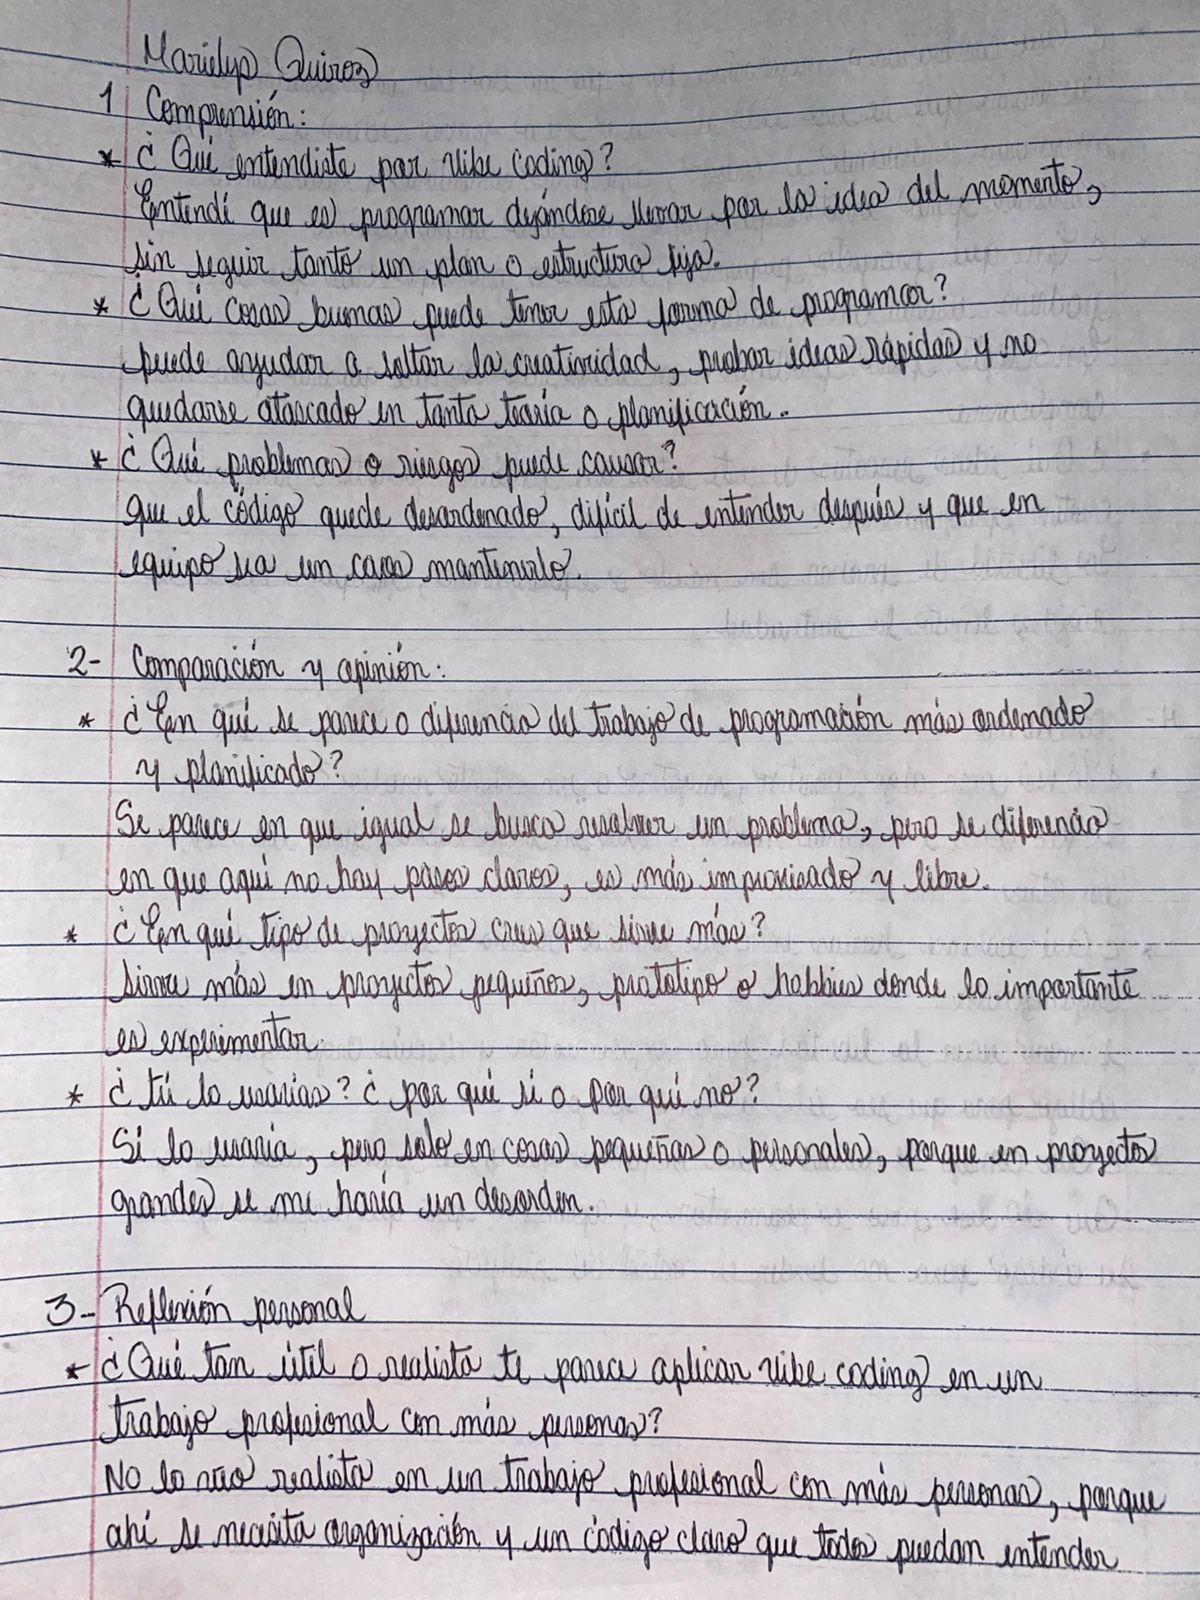 Marielys Quiroz
1 Comprensión:
* ¿Qué entendiste por vibe coding?
Entendí que es programar dejándose llevar por la idea del momento,
sin seguir tanto un plan o estructura fija.
* ¿Qué cosas buenas puede tener esta forma de programar?
puede ayudar a soltar la creatividad, probar ideas rápidas y no
quedarse atascado en tanta teoría o planificación.
* ¿Qué problemas o riesgos puede causar?
que el código quede desordenado, difícil de entender después y que en
equipo sea un caos mantenerlo.
2- Comparación y opinión:
* ¿En qué se parece o diferencia del trabajo de programación más ordenado
y planificado?
Se parece en que igual se busca resolver un problema, pero se diferencia
en que aquí no hay pasos claros, es más improvisado y libre.
* ¿En qué tipo de proyectos crees que sirve más?
sirve más en proyectos pequeños, prototipo o hobbies donde lo importante
es experimentar.
* ¿tú lo usarías? ¿por qué sí o por qué no?
Sí lo usaría, pero solo en cosas pequeñas o personales, porque en proyectos
grandes se me haría un desorden.
3- Reflexión personal
* ¿Qué tan útil o realista te parece aplicar vibe coding en un
trabajo profesional con más personas?
No lo veo realista en un trabajo profesional con más personas, porque
ahí se necesita organización y un código claro que todos puedan entender